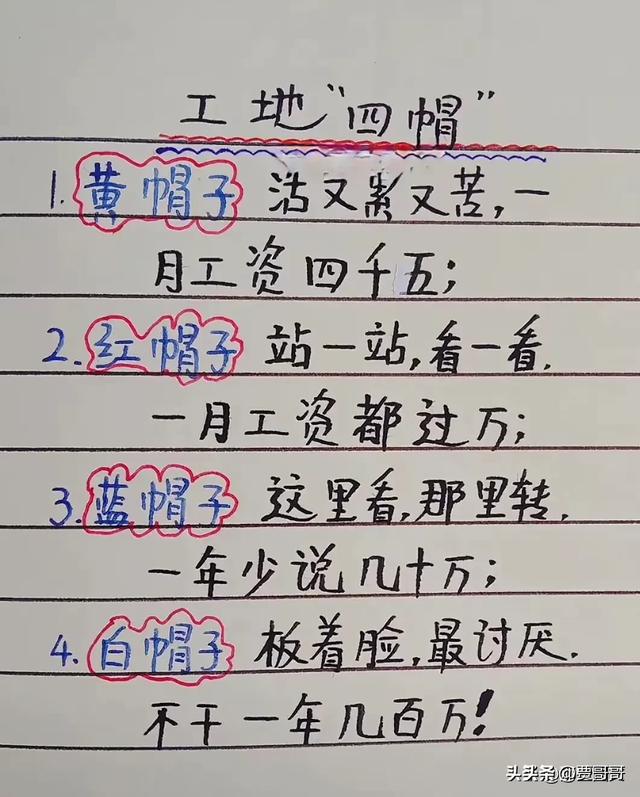 工地"四帽"
1.黄帽子 活又累又苦,一
月工资四千五;
2.红帽子 站一站,看一看.
一月工资都过万;
3.蓝帽子 这里看,那里转.
一年少说几十万;
4.白帽子 板着脸,最讨厌.
不干一年几百万!
头条@贾哥哥